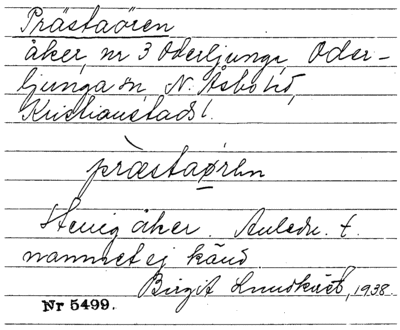 Prästaören
åker, nr 3 Oderljunga, Oder-
ljunga sn, N. Åsbo hd,
Kristianstads l.
præstaørən
Stenig åker. Anledn. t.
namnet ej känd
Birgit 1938.
Nr 5499.